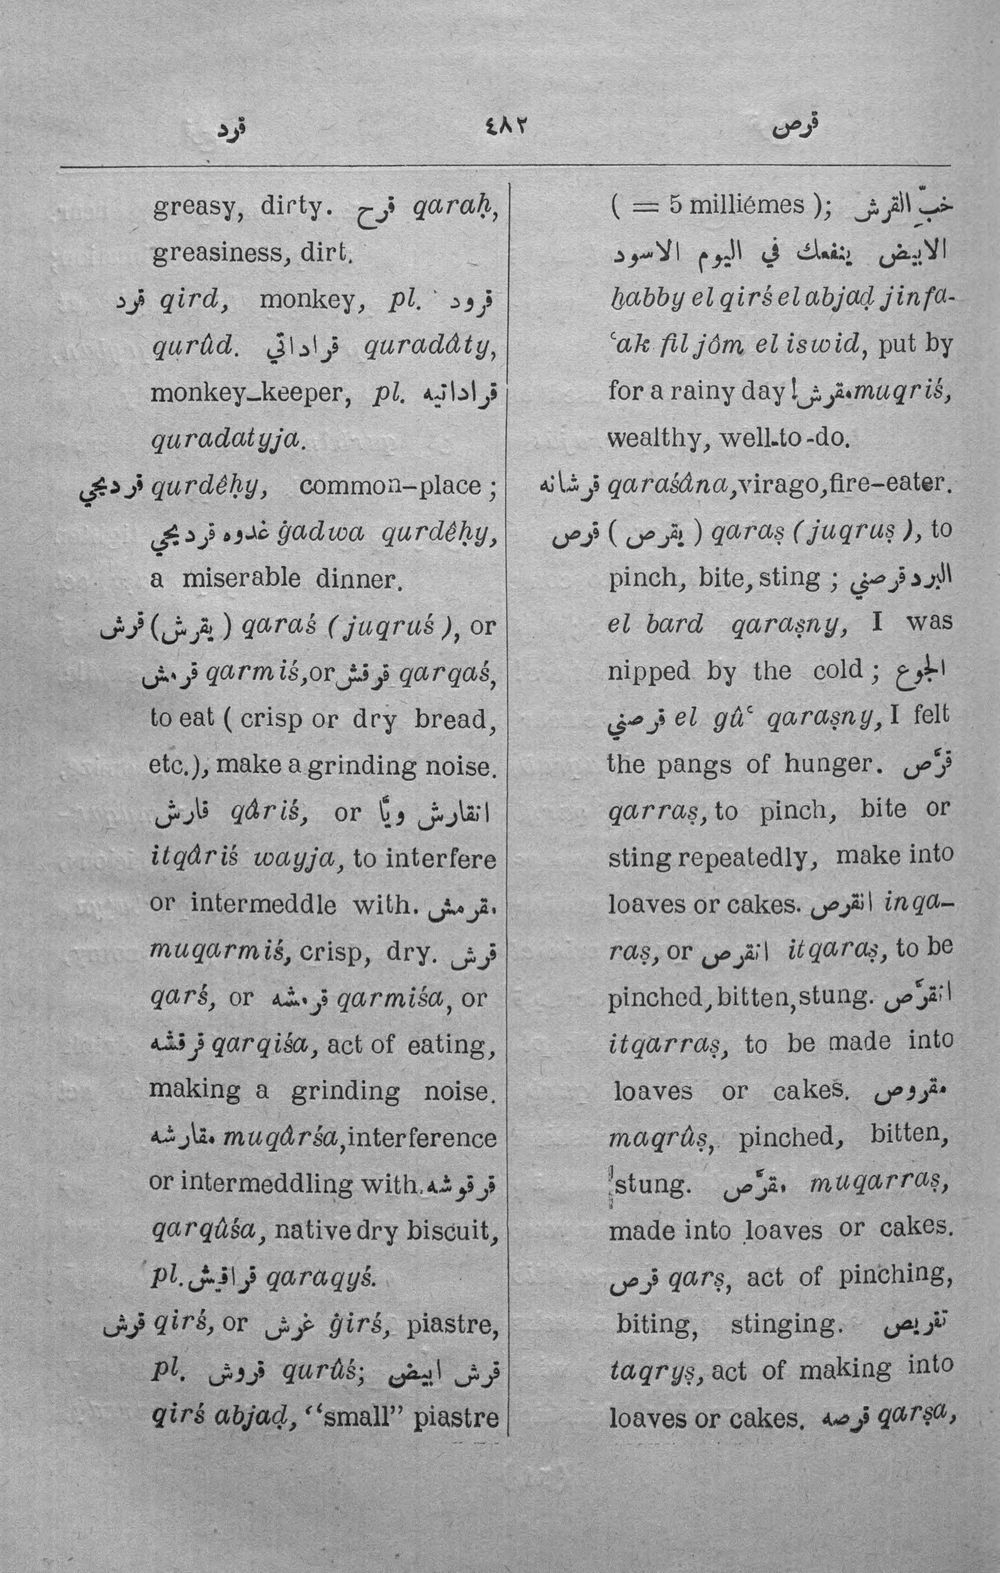 قرد ٤٨٢ قرص
greasy, dirty. قرح qaraḥ,
greasiness, dirt.
قرد qird, monkey, pl. قرود
qurûd. قراداتي quradâty,
monkey-keeper, pl. قراداتيه
quradatyja.
قرديحي qurdêḥy, common-place ;
غدوه قرديحي ġadwa qurdêḥy,
a miserable dinner.
قرش (يقرش ) qaraś (juqruś ), or
قرمش qarmiś, or قرقش qarqaś,
to eat ( crisp or dry bread,
etc.), make a grinding noise.
قارش qâriś, or انقارش ويَّا
itqâriś wayja, to interfere
or intermeddle with. مقرمش
muqarmiś, crisp, dry. قرش
qarś, or قرمشه qarmiśa, or
قرقشه qarqiśa, act of eating,
making a grinding noise.
مقارشه muqârśa, interference
or intermeddling with. قرقوشه
qarqûśa, native dry biscuit,
pl. قراقيش qaraqyś.
قرش qirś, or غرش ġirś, piastre,
pl. قروش qurûś; قرش ابيض
qirś abjaḍ, “small” piastre
( = 5 milliémes ); خبِّ القرش
الابيض ينفعك في اليوم الاسود
ḫabby el qirś el abjaḍ jinfa-
ʿak fil jôm el iswid, put by
for a rainy day! مقرش muqriś,
wealthy, well-to-do.
قرشانه qaraśâna, virago, fire-eater.
قرص ( يقرص ) qaraṣ (juqruṣ ), to
pinch, bite, sting ; البرد قرصني
el bard qaraṣny, I was
nipped by the cold ; الجوع
قرصني el gûʿ qaraṣny, I felt
the pangs of hunger. قرَّص
qarraṣ, to pinch, bite or
sting repeatedly, make into
loaves or cakes. انقرص inqa-
raṣ, or اتقرص itqaraṣ, to be
pinched, bitten, stung. اتقرَّص
itqarraṣ, to be made into
loaves or cakes. مقروص
maqrûṣ, pinched, bitten,
stung. مقرَّص muqarraṣ,
made into loaves or cakes.
قرص qarṣ, act of pinching,
biting, stinging. تقريص
taqryṣ, act of making into
loaves or cakes. قرصه qarṣa,